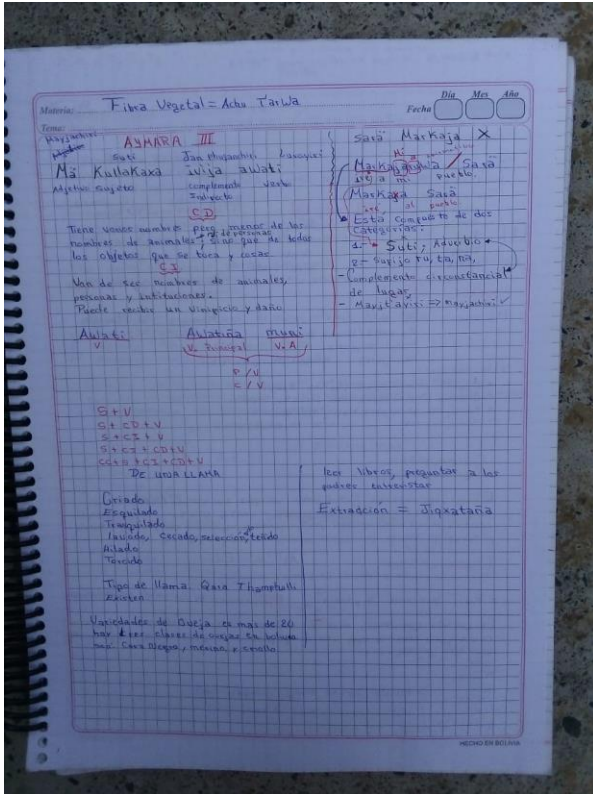 Materia: Fibra Vegetal = Achu Tarwa
Fecha Día Mes Año
Tema:
Mayjachiri
AYMARA III
Suti
Mä Kullakaxa iwija awati
Adjetivo Sujeto complemento Verbo
Indirecto
C.D
Tiene varios nombres pero menos de los
nombres de animales, sino que de todas
de personas
los objetos que se toca y cosas
C.I
Van de ser nombres de animales,
personas y instituciones.
Puede recibir un y daño
Awati Awatiña muni
V V. Principal V.A
P / V
C / V
S + V
S + CD + V
S + CI + V
S + CI + CD + V
CC + S + CI + CD + V
DE UNA LLAMA
Criado
Esquilado
Trasquilado
lavado, Secado, selección, teñido
Hilado
Torcido
Tipo de llama. Qara Thampulli
Existen
Variedades de Oveja es más de 80
hay tres clases de ovejas en bolivia
son Cara Negra, merino, y criollo
Sarä Markaja X
Mi
Markajawa Sarä
iré a mi pueblo.
Markaxa Sarä
iré al pueblo.
Está compuesto de dos
Categorías.
1.- Suti; Adverbio
2.- Sufijo ru, ta, na,
- Complemento circunstancial
de lugar.
- => mayjachiri
leer libros, preguntar a los
padres entrevistar
Extracción = Jiqxataña
HECHO EN BOLIVIA